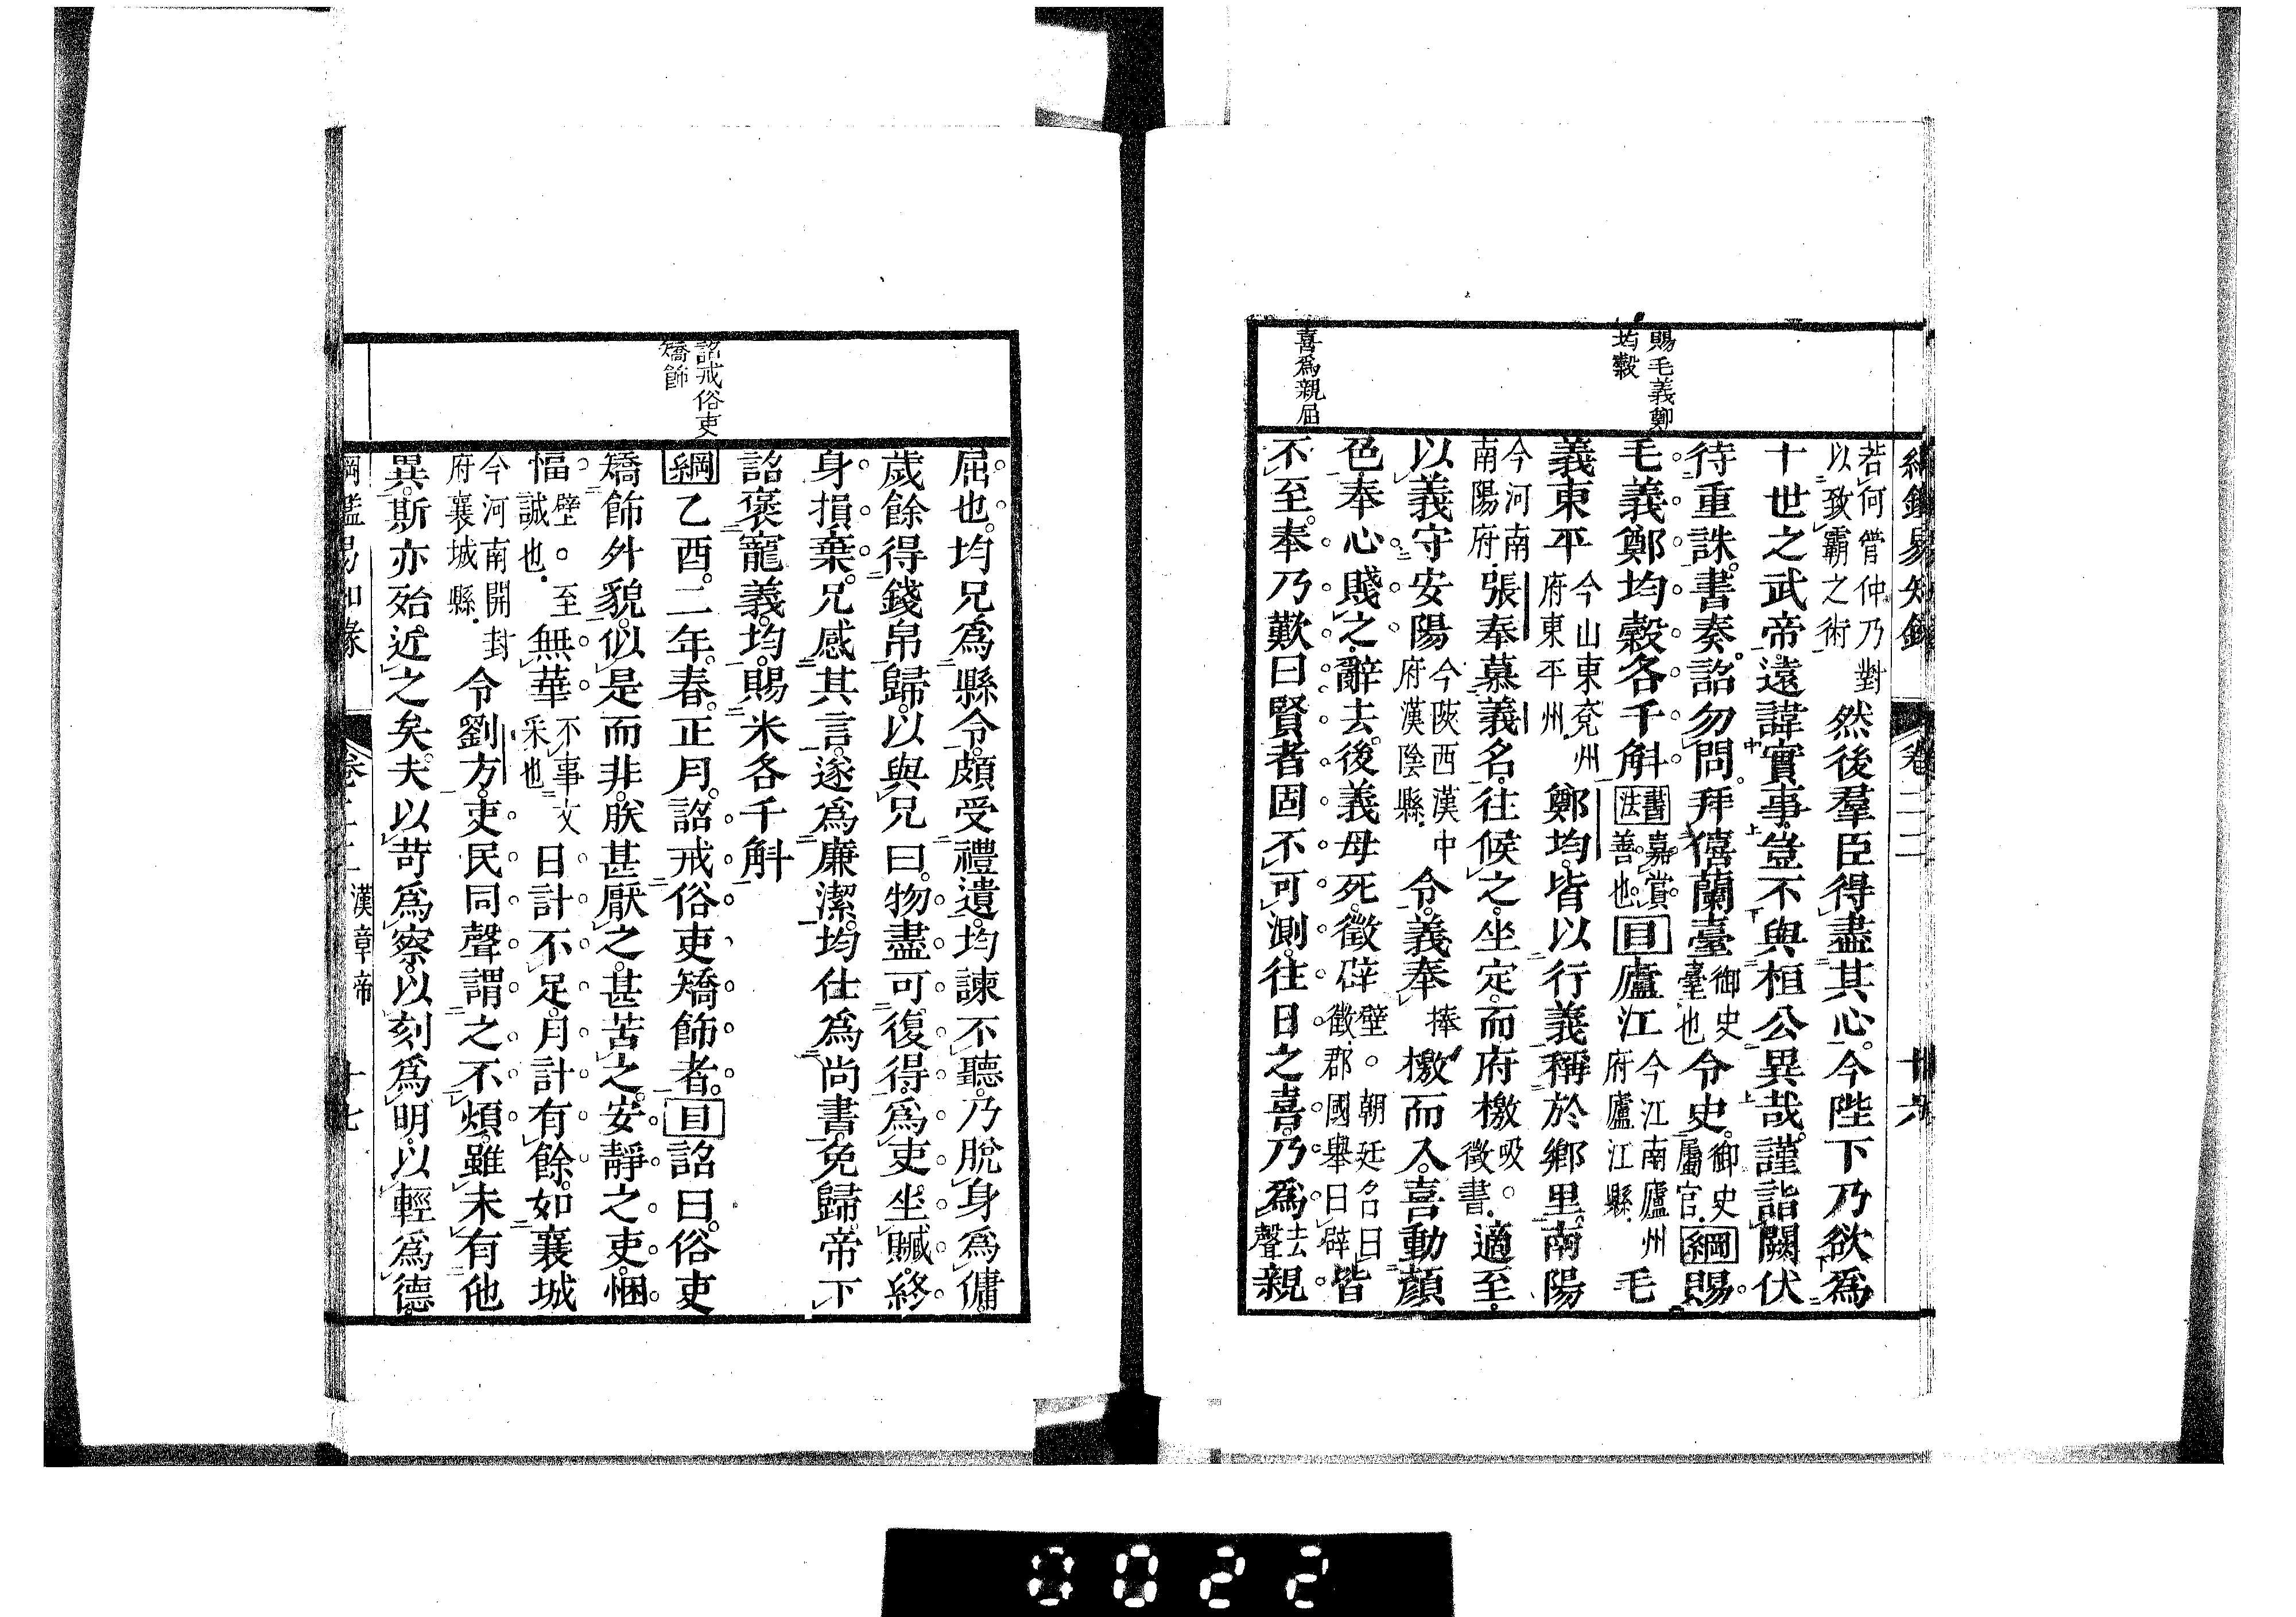 綱鑑易知錄 卷二二 十六
賜毛義鄭
均穀
喜為親屈
若何管仲乃對
以致霸之術
然後羣臣得盡其心今陛下乃欲為
十世之武帝遠諱實事豈不與桓公異哉謹詣闕伏
待重誅書奏詔勿問拜僖蘭臺御史
臺也
令史御史
屬官
綱賜
毛義鄭均穀各千斛書法嘉賞
善也
目廬江今江南廬州
府廬江縣
毛
義東平今山東兗州
府東平州
鄭均皆以行義稱於鄉里南陽
今河南
南陽府
張奉慕義名往候之坐定而府檄吸。
徵書
適至
以義守安陽今陝西漢中
府漢陰縣
令義奉捧
檄而入喜動顏
色奉心賤之辭去後義母死徵辟壁。朝廷名曰
徵郡國舉曰辟
皆
不至奉乃歎曰賢者固不可測往日之喜乃為去
聲
親
詔戒俗吏
矯飾
屈也均兄為縣令頗受禮遺均諫不聽乃脫身為傭
歲餘得錢帛歸以與兄曰物盡可復得為吏坐贓終
身損棄兄感其言遂為廉潔均仕為尚書免歸帝下
詔褒寵義均賜米各千斛
綱乙酉二年春正月詔戒俗吏矯飾者目詔曰俗吏
矯飾外貌似是而非朕甚厭之甚苦之安靜之吏悃
愊壁。至
誠也
無華不事文
采也
日計不足月計有餘如襄城
今河南開封
府襄城縣
令劉方吏民同聲謂之不煩雖未有他
異斯亦殆近之矣夫以苛為察以刻為明以輕為德
綱鑑易知錄 卷二二 漢章帝 十七
0022